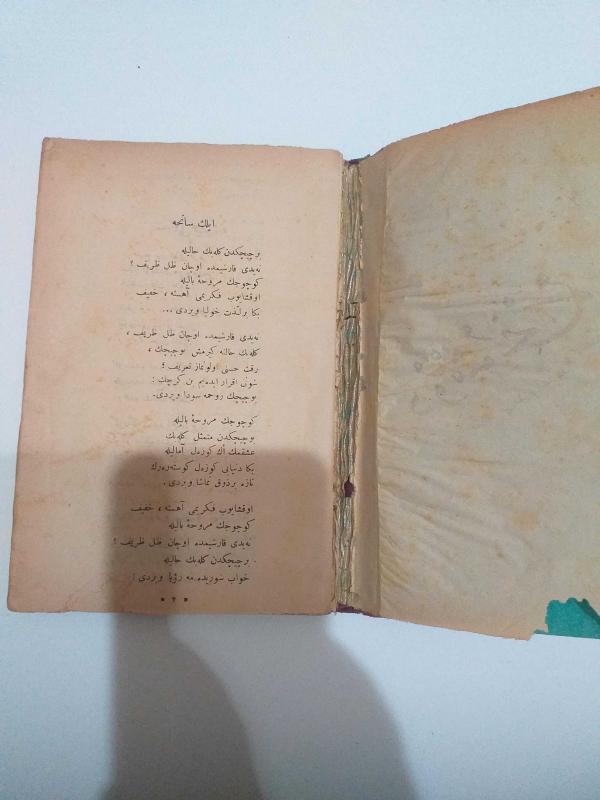 ایلك سانحه
بر چیچكدن كله‌بك حالیله
نه‌یدی قارشیمده اوچان ظل ظریف !
كوچوجك مروحۀ بالیله
اوقشایوب فكریمی آهسته ، خفیف
بكا بر لذت خولیا ویردی ...
نه‌یدی قارشیمده اوچان ظل ظریف ،
كله‌بك حالنه كیرمش بو چیچك ،
رقت حسنی اولونماز تعریف !
شونی اقرار ایده‌یم بن كرچك :
بو چیچك روحمه سودا ویردی .
كوچوجك مروحۀ بالیله
بو چیچكدن متمثل كله‌بك
عشقمك اڭ كوزه‌ل آمالیله
بكا دنیایی كوزه‌ل كوستره‌رك
تازه بر ذوق تماشا ویردی .
اوقشایوب فكریمی آهسته ، خفیف
كوچوجك مروحۀ بالیله
نه‌یدی قارشیمده اوچان ظل ظریف !
بر چیچكدن كله‌بك حالیله
خواب شوریده مه رؤیا ویردی :